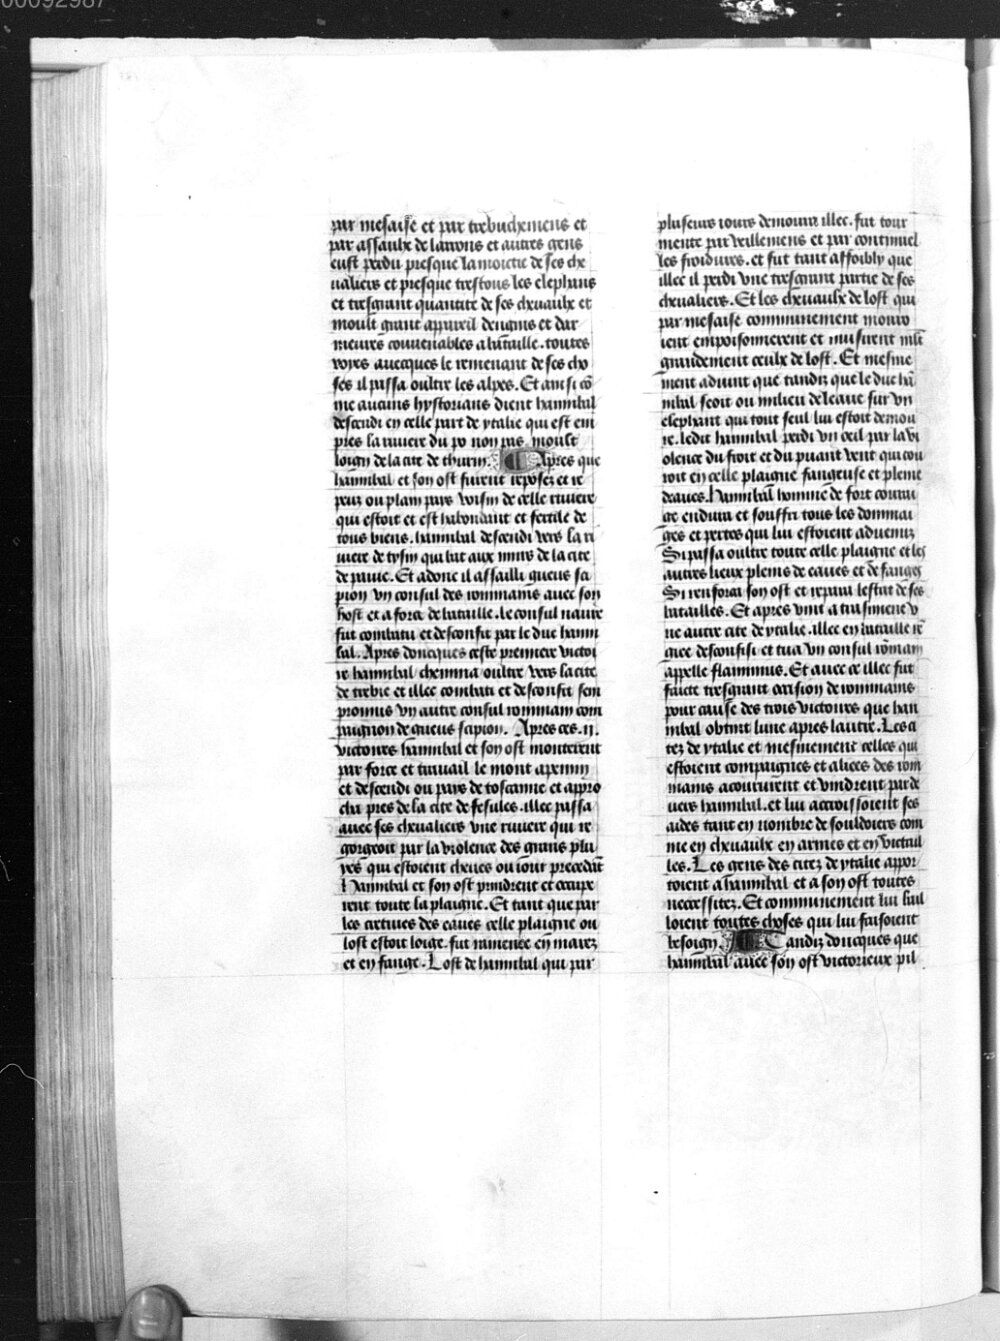 00092987
par mesaise et par trebuchemens et
par assaulx de larrons et autres gens
eust perdu presque la moictie de ses che
ualiers et presque trestous les elephans
et tresgrant quantite de ses cheuaulx et
moult grant appareil dengins et dar
meures conuenables a bataille. toutes
voyes auecques le remenant de ses cho
ses il passa oultre les alpes. Et ainsi cõ
me aucuns hystorians dient hannibal
descendi en celle part de ytalie qui est em
pres la riuiere du po non pas moult
loing de la cite de thurin. Apres que
hannibal et son ost furent reposez et re
peuz ou plain pays voisin de celle riuiere
qui estoit et est habondant et fertile de
tous biens. hannibal descendi vers la ri
uiere de tysin qui bat aux murs de la cite
de pauie. Et adonc il assailli gneus sci
pion vn consul des rommains auec son
host et a force de bataille. le consul naure
fut combatu et desconfit par le duc hanni
bal. Apres doncques ceste premiere victoi
re hannibal chemina oultre vers la cite
de trebie et illec combati et desconfit sem
pronius vn autre consul rommain com
paignon de gneus scipion. Apres ces .ii.
victoires hannibal et son ost monterent
par force et trauail le mont apennin
et descendi ou pays de toscanne et appro
cha pres de la cite de fesules. illec passa
auec ses cheualiers vne riuiere qui re
gorgeoit par la violence des grans plu
yes qui estoient cheues ou iour precedãt
Hannibal et son ost prindrent et occupe
rent toute la plaigne. Et tant que par
les cretines des eaues celle plaigne ou
lost estoit loige. fut ramenee en marez
et en fange. Lost de hannibal qui par
plusieurs iours demoura illec. fut tour
mente par veillemens et par continuel
les froidures. et fut tant affoibly que
illec il perdi vne tresgrant partie de ses
cheualiers. Et les cheuaulx de lost qui
par mesaise communement mouro
ient empoisonnerent et nuisirent mlt
grandement ceulx de lost. Et mesme
ment aduint que tandiz que le duc hã
nibal seoit ou milieu de leaue sur vn
elephant qui tout seul lui estoit demou
re. ledit hannibal perdi vn oeil par la vi
olence du froit et du puant vent qui cou
roit en celle plaigne fangeuse et pleine
deaues. Hannibal homme de fort coura
ge endura et souffri tous les dommai
ges et pertes qui lui estoient aduenuz
Si passa oultre toute celle plaigne et les
autres lieux pleins de eaues et de fanges
Si renforca son ost et repara lestat de ses
batailles. Et apres vint a trasimene v
ne autre cite de ytalie. illec en bataille rẽ
gee desconfist et tua vn consul rõmain
appelle flaminius. Et auec ce illec fut
faicte tresgrant occision de rommains
pour cause des trois victoires que han
nibal obtint lune apres lautre. Les ci
tez de ytalie et mesmement celles qui
estoient compaignes et aliees des rom
mains acoururent et vindrent par de
uers hannibal. et lui accroissoient ses
aides tant en nombre de souldoiers com
me en cheuaulx en armes et en victail
les. Les gens des citez de ytalie appor
toient a hannibal et a son ost toutes
necessitez. Et communement lui bail
loient toutes choses qui lui faisoient
besoign. Tandiz doncques que
hannibal auec son ost victorieux pil